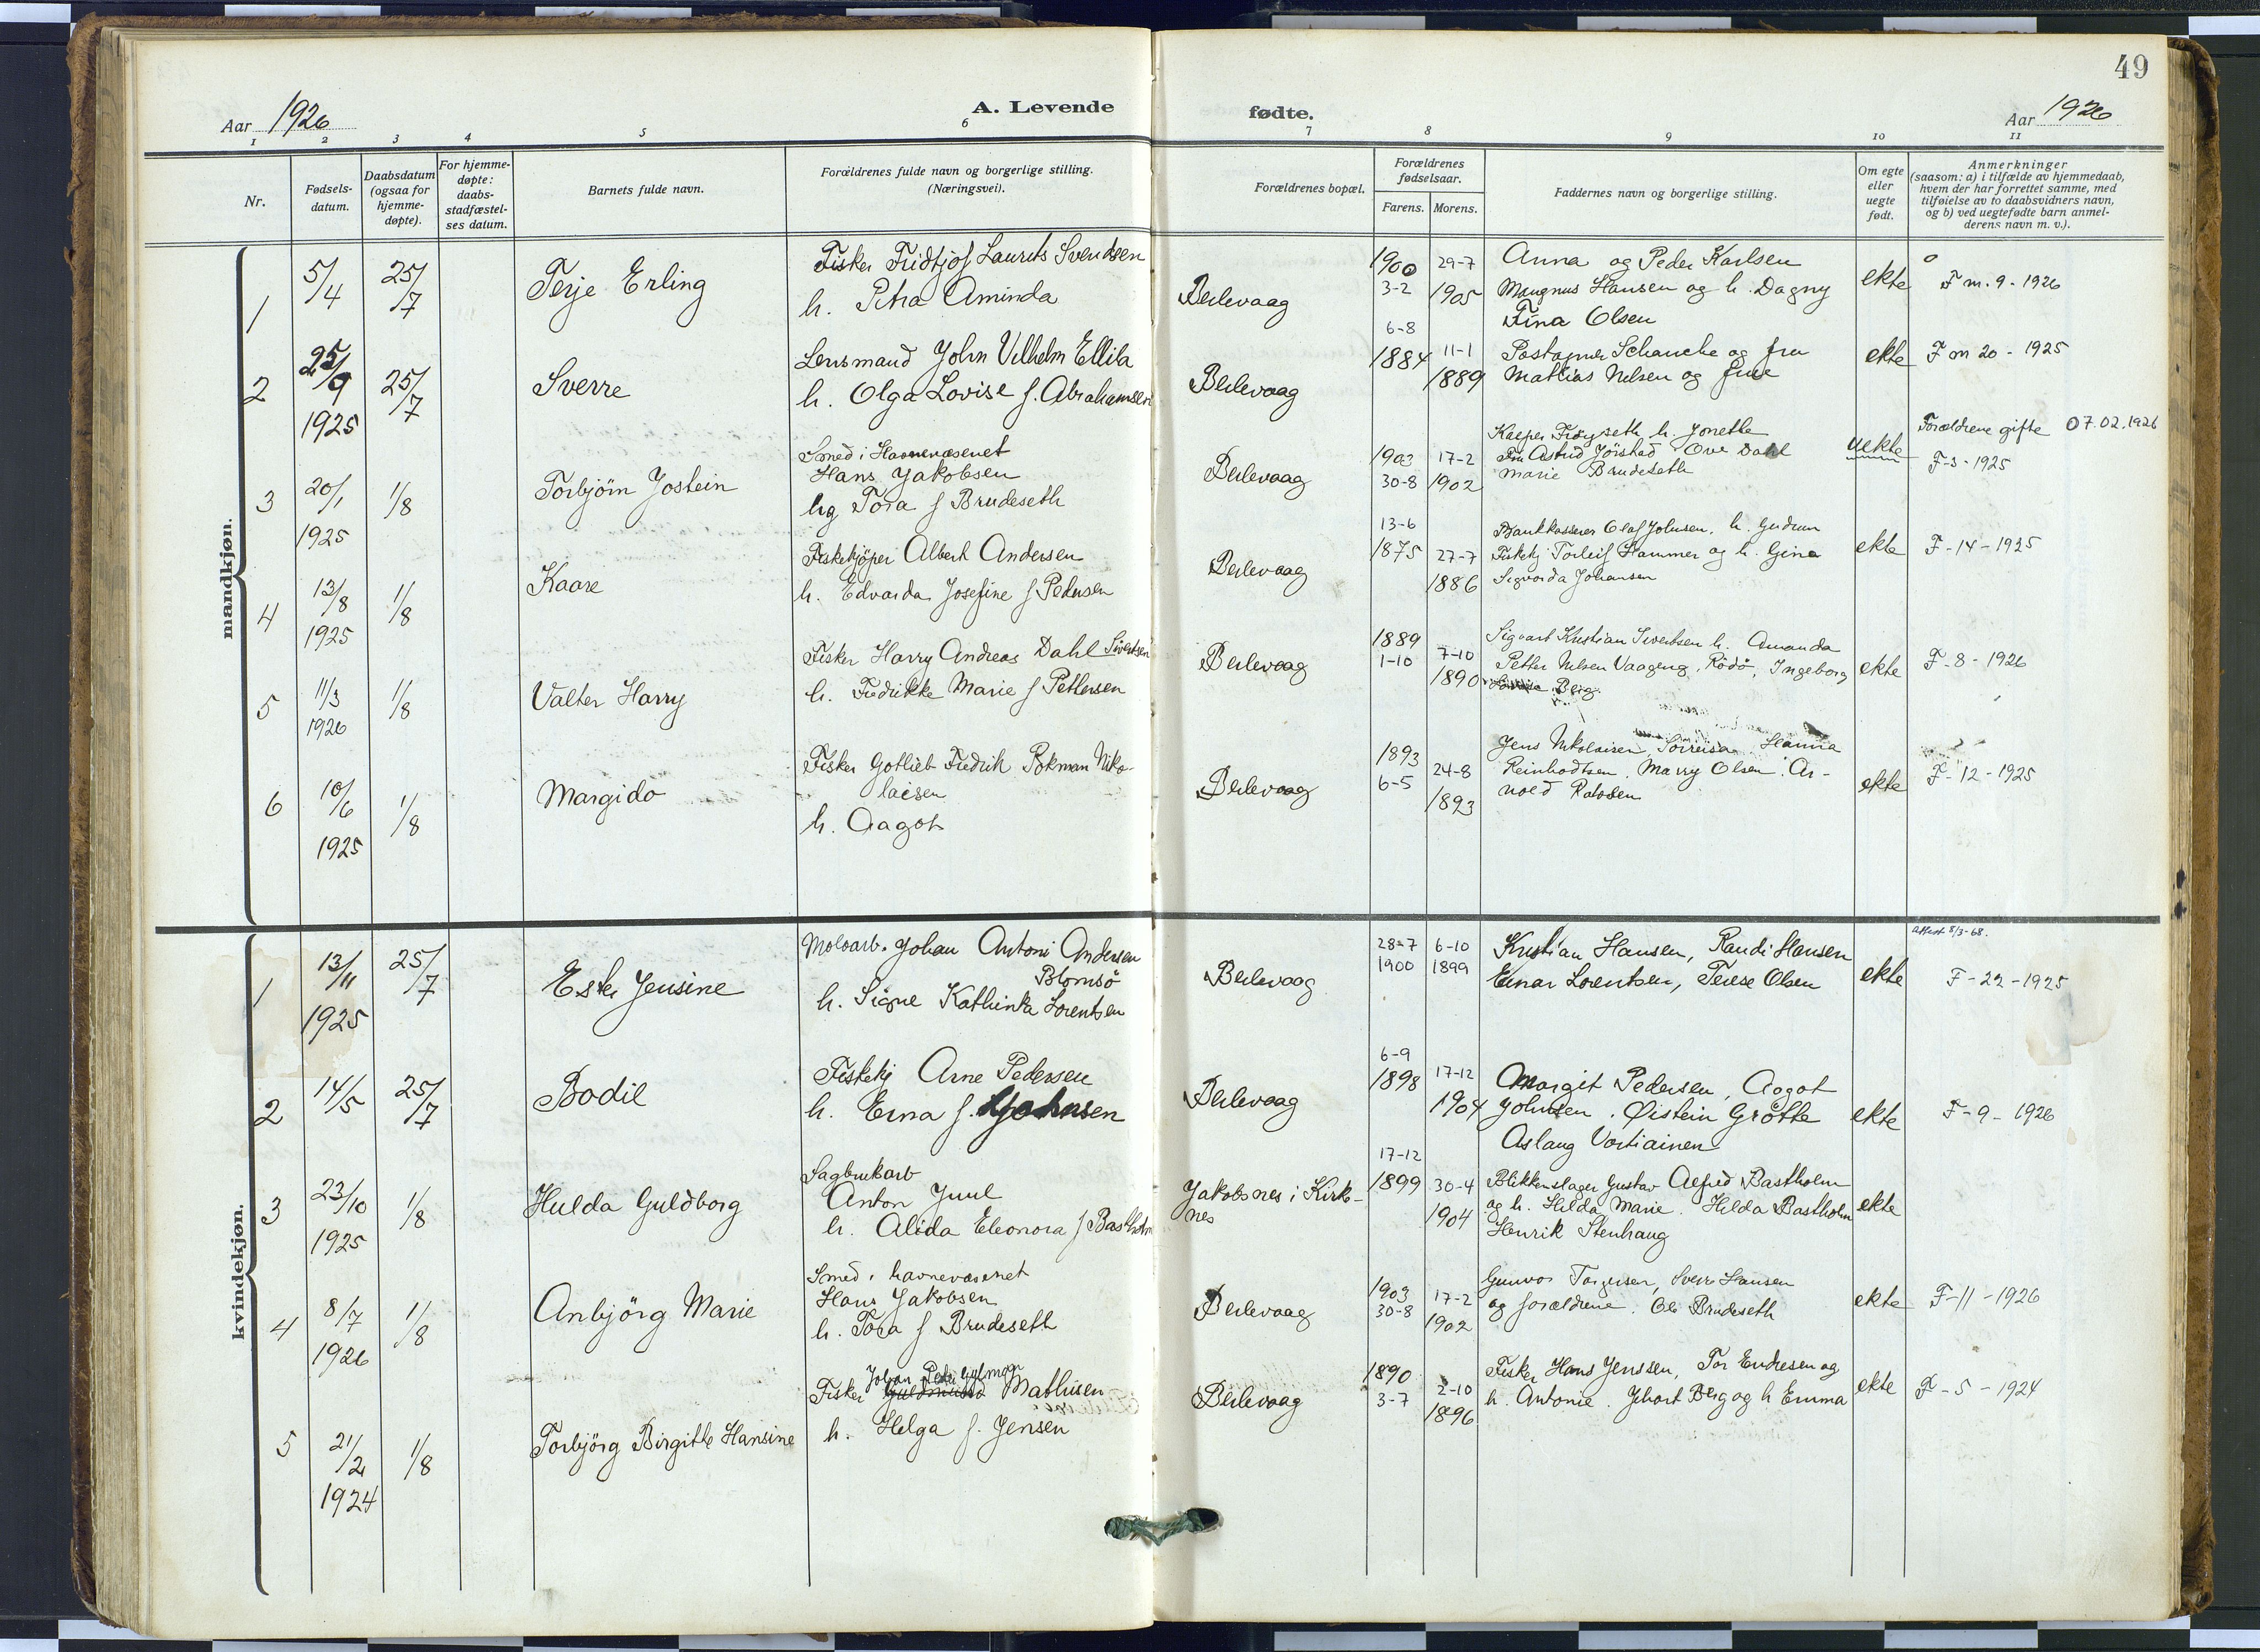 49
Aar 1926
A. Levende
fødte.
Aar 1926
1 2 3 4 5 6 7 8 9 10 11
Nr.
Fødsels-
datum.
Daabsdatum
(ogsaa for
hjemme-
døpte).
For hjemme-
døpte:
daabs-
stadfæstel-
ses datum.
Barnets fulde navn.
Forældrenes fulde navn og borgerlige stilling.
(Næringsvei).
Forældrenes bopæl.
Forældrenes
fødselsaar.
Farens. Morens.
Faddernes navn og borgerlige stilling.
Om egte
eller
uegte
født.
Anmerkninger
(saasom: a) i tilfælde av hjemmedaab,
hvem der har forrettet samme, med
tilføielse av to daabsvidners navn,
og b) ved uegtefødte barn anmel-
derens navn m. v.).
mandkjøn.
1
5/4
25/7
Terje Erling
Fisker Fridtjof Laurits Svendsen
h. Petra Aminda
Berlevaag
1900
3-2
29-7
1905
Anna og Peder Karlsen
Mangnus Hansen og h. Dagny
Tina Olsen
ekte
F m. 9 - 1926
2
25/9
1925
25/7
Sverre
Lensmand John Vilhelm Ellila
h. Olga Lovise f. Abrahamsen
Berlevaag
6-8
1884
11-1
1889
Postaapner Schanche og fru
Mathias Nilsen og frue
ekte
F m 20 - 1925
3
20/1
1925
1/8
Torbjörn Jostein
Smed i Havnevæsenet
Hans Jakobsen
hg Tora f Brudeseth
Berlevaag
1903
30-8
17-2
1902
Kasper Fröyseth h. Jonette
Fru Astrid Jörstad Ove Dahl
Marie Brudeseth
uekte
Forældrene gifte 07.02.1926
F-3-1925
4
13/8
1925
1/8
Kaare
Fiskekjöper Albert Andersen
h. Edvarda Josefine f Pedersen
Berlevaag
13-6
1875
27-7
1886
Bankkasserer Olaf Johnsen. h. Gudrun
Fiskekj Torleif Hammer og h. Gina
Sigvarda Johansen
ekte
F-14-1925
5
11/3
1926
1/8
Valter Harry
Fisker Harry Andreas Dahl Sivertsen
h. Fredrikke Marie f Pettersen
Berlevaag
1889
1-10
7-10
1890
Sigvart Kristian Sivertsen h. Amanda
Petter Nilsen Vaageng, Rödö, Ingeborg
Berg
ekte
F-8-1926
6
10/6
1925
1/8
Margido
Fisker Gotlieb Fredrik Bokman Niko-
laisen
h. Aagot
Berlevaag
1893
6-5
24-8
1893
Jens Nikolaisen, Sörreisa. Hanna
Reinhodtsen. Marry Olsen. Ar-
nold
ekte
F-12-1925
kvindekjøn.
1
13/11
1925
25/7
Ester Jensine
Moloarb. Johan Antoni Andersen
Blomsö
h. Signe Kathinka Lorentsen
Berlevaag
28-7
1900
6-10
1899
Kristian Hansen, Randi Hansen
Einar Lorentsen, Terese Olsen
ekte
Attest 8/3-68.
F-22-1925
2
14/5
25/7
Bodil
Fiskekj Arne Pedersen
h. Erna f. Johnsen
Berlevaag
6-9
1898
17-12
1904
Margit Pedersen, Aagot
Johnsen. Øistein Grötte
Aslaug Vartiainen
ekte
F-9-1926
3
23/10
1925
1/8
Hulda Guldborg
Sagbrukarb
Anton Juul
h. Alida Eleonora f Bastholm
Jakobsnes i Kirke-
nes
17-12
1899
30-4
1904
Blikkenslager Gustav Alfred Bastholm
og h. Hilda Marie. Hilda Bastholm
Henrik Stenhaug
ekte
4
8/7
1926
1/8
Anbjörg Marie
Smed i havnevæsenet
Hans Jakobsen
h. Tora f Brudeseth
Berlevaag
1903
30-8
17-2
1902
Gunvor Torgersen, Sverr Hansen
og forældrene. Ole Brudeseth
ekte
F-11-1926
5
21/2
1924
1/8
Torbjörg Birgitte Hansine
Johan Peder Hjelmar
Fisker Mathisen
h. Helga f. Jensen
Berlevaag
1890
3-7
2-10
1896
Fisker Hans Jenssen, Tor Endresen og
h. Antonie. Jehart Berg og h Emma
ekte
F-5-1924